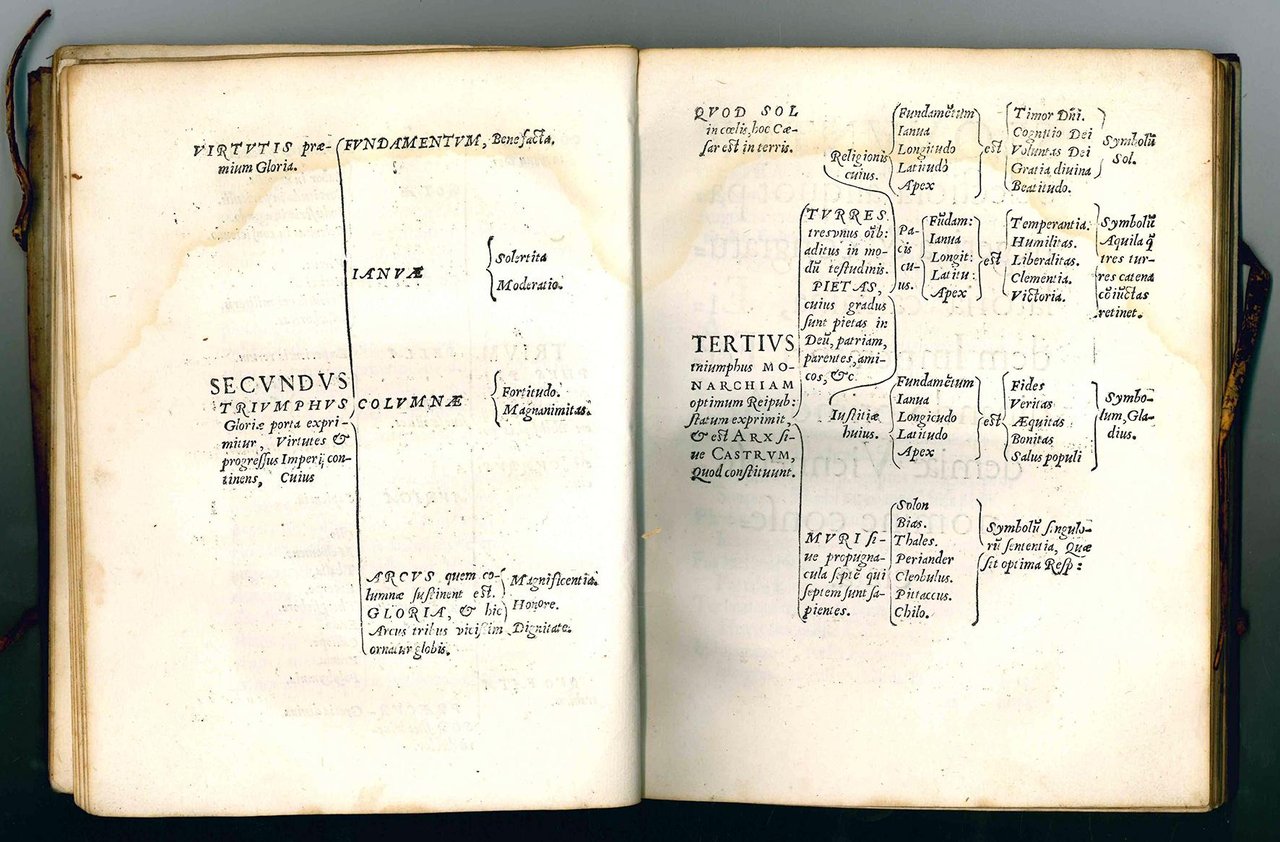 VIRTVTIS præ-
mium Gloria.
FVNDAMENTVM, Benefacta.
IANVÆ
Solertita
Moderatio.
SECVNDVS
TRIVMPHVS
Gloriæ porta expri-
mitur, Virtutes &
progressus Imperij con-
tinens, Cuius
COLVMNÆ
Fortitudo.
Magnanimitas.
ARCVS quem co-
lumnæ sustinent est.
GLORIA, & hic
Arcus tribus vicissim
ornatur globis.
Magnificentia.
Honore.
Dignitate.
QVOD SOL
in cœlis, hoc Cæ-
sar est in terris.
Religionis
cuius.
Fundamētum
Ianua
Longitudo
Latitudo
Apex
est
Timor Dñi.
Cognitio Dei
Voluntas Dei
Gratia diuina
Beatitudo.
Symbolū
Sol.
TVRRES
tresvnus oīb:
aditus in mo-
dū testudinis.
PIETAS,
cuius gradus
sunt pietas in
Deū, patriam,
parentes, ami-
cos, &c.
Pa-
cis
cu-
ius.
Fūdam:
Ianua
Longit:
Latitu:
Apex
est
Temperantia.
Humilitas.
Liberalitas.
Clementia.
Victoria.
Symbolū
Aquila q̄
tres tur-
res catena
cōiūctas
retinet.
TERTIVS
triumphus MO-
NARCHIAM
optimum Reipub:
statum exprimit,
& est ARX si-
ue CASTRVM,
Quod constituunt.
Iustitiæ
huius.
Fundamētum
Ianua
Longitudo
Latitudo
Apex
est
Fides
Veritas
Æquitas
Bonitas
Salus populi
Symbo-
lum, Gla-
dius.
MVRI si-
ue propugna-
cula septē qui
septem sunt sa-
pientes.
Solon
Bias.
Thales.
Periander
Cleobulus.
Pittaccus.
Chilo.
Symbolū singulo-
rū sententia, Quæ
sit optima Resp: